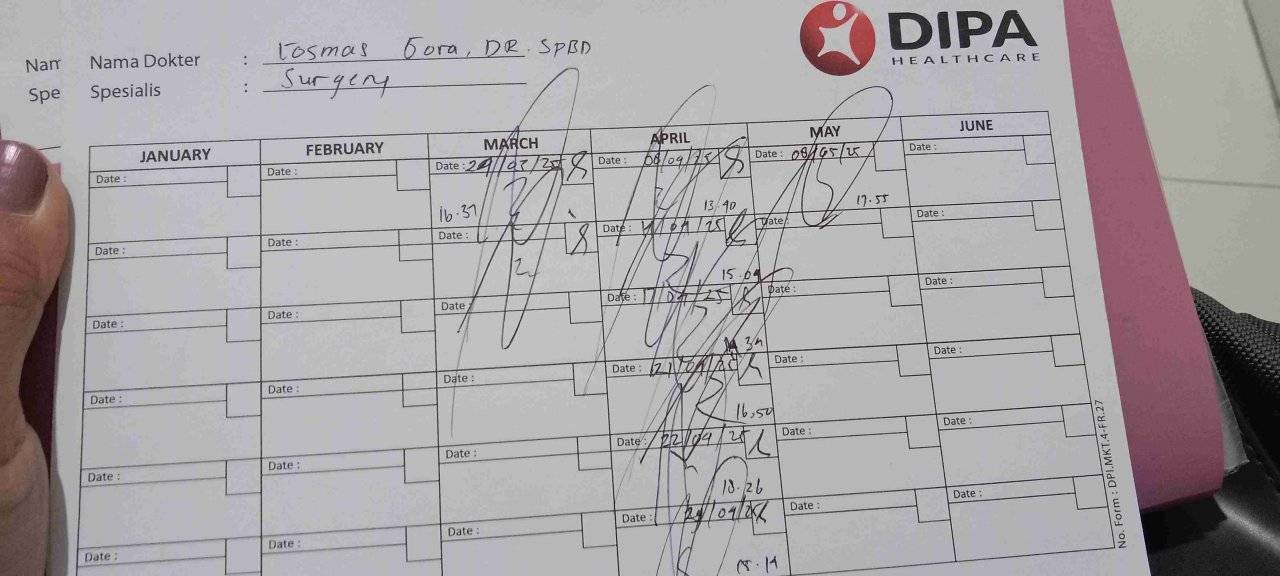 DIPA
HEALTHCARE
Nam Nama Dokter : Kosmas Gora, DR. SPBD
Spe Spesialis : Surgery
JANUARY FEBRUARY MARCH APRIL MAY JUNE
Date : Date : Date : 29/03/25 Date : 08/04/25 Date : 08/05/25 Date :
16.37 13.40 17.55
Date : Date : Date : Date : /04/25 Date : Date :
15.09
Date : Date : Date : Date : 17/04/25 Date : Date :
Date : Date : Date : Date : 21/04/25 Date : Date :
16.50
Date : Date : Date : Date : 22/04/25 Date : Date :
18.26
Date : Date : Date : Date : 29/04/25 Date : Date :
15.14
No. Form : DPI.MKT.4-FR.27